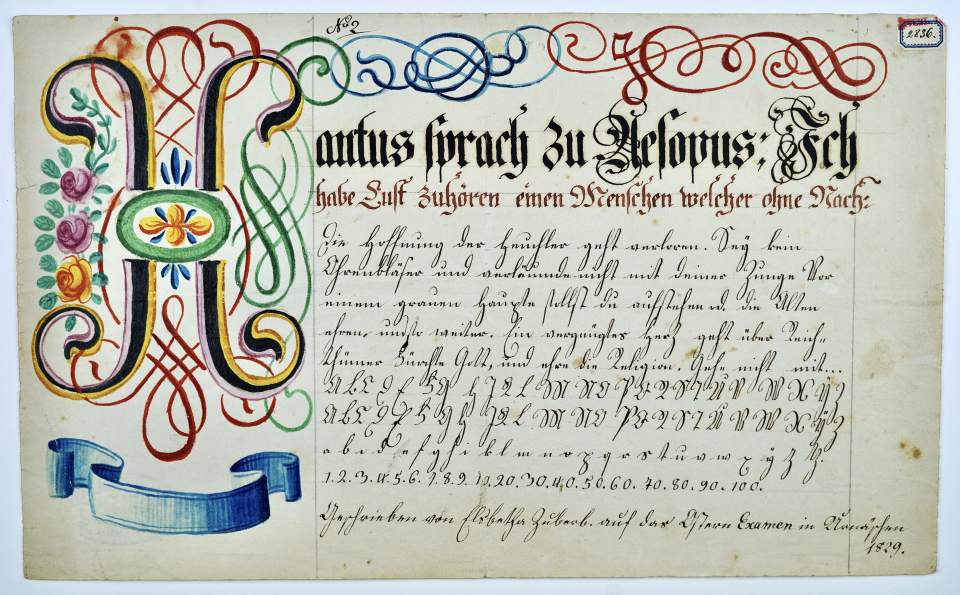 No 2
2836.
Xantus sprach zu Aesopus; Ich
habe Lust zuhören einen Menschen welcher ohne Nach-
Die Hoffnung der Heuchler geht verloren. Sey kein
Ohrenbläser und verläumde nicht mit deiner Zunge Vor
einem grauen Haupte sollst du aufstehen u. die Alten
ehren, und so weiter. Ein vergnügtes Herz geht über Reich-
thümer Fürchte Gott, und ehre die Religion. Gehe nicht mit...
A B C D E F G H J K L M N O P Q R S T U V W X Y Z
A B C D E F G H J K L M N O P Q R S T U V W X Y Z
a b c d e f g h i k l m n o p q r s t u v w x y z
1. 2. 3. 4. 5. 6. 7. 8. 9. 10. 20. 30. 40. 50. 60. 70. 80. 90. 100.
Geschrieben von Elsbetha Zuberb. auf das Ostern Examen in Urnäschen
1829.